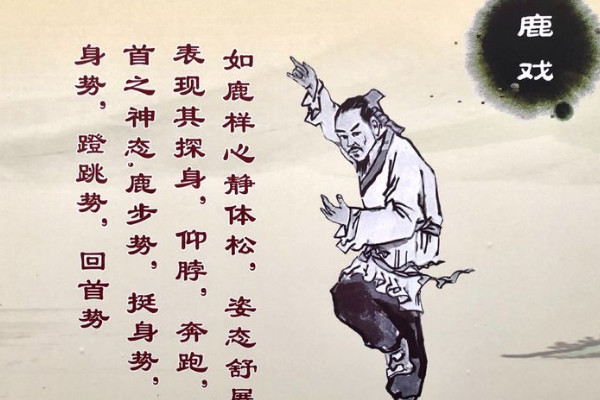 鹿戏
如鹿样心静体松，姿态舒展
表现其探身，仰脖，奔跑，
首之神态.鹿步势，挺身势，
身势，蹬跳势，回首势